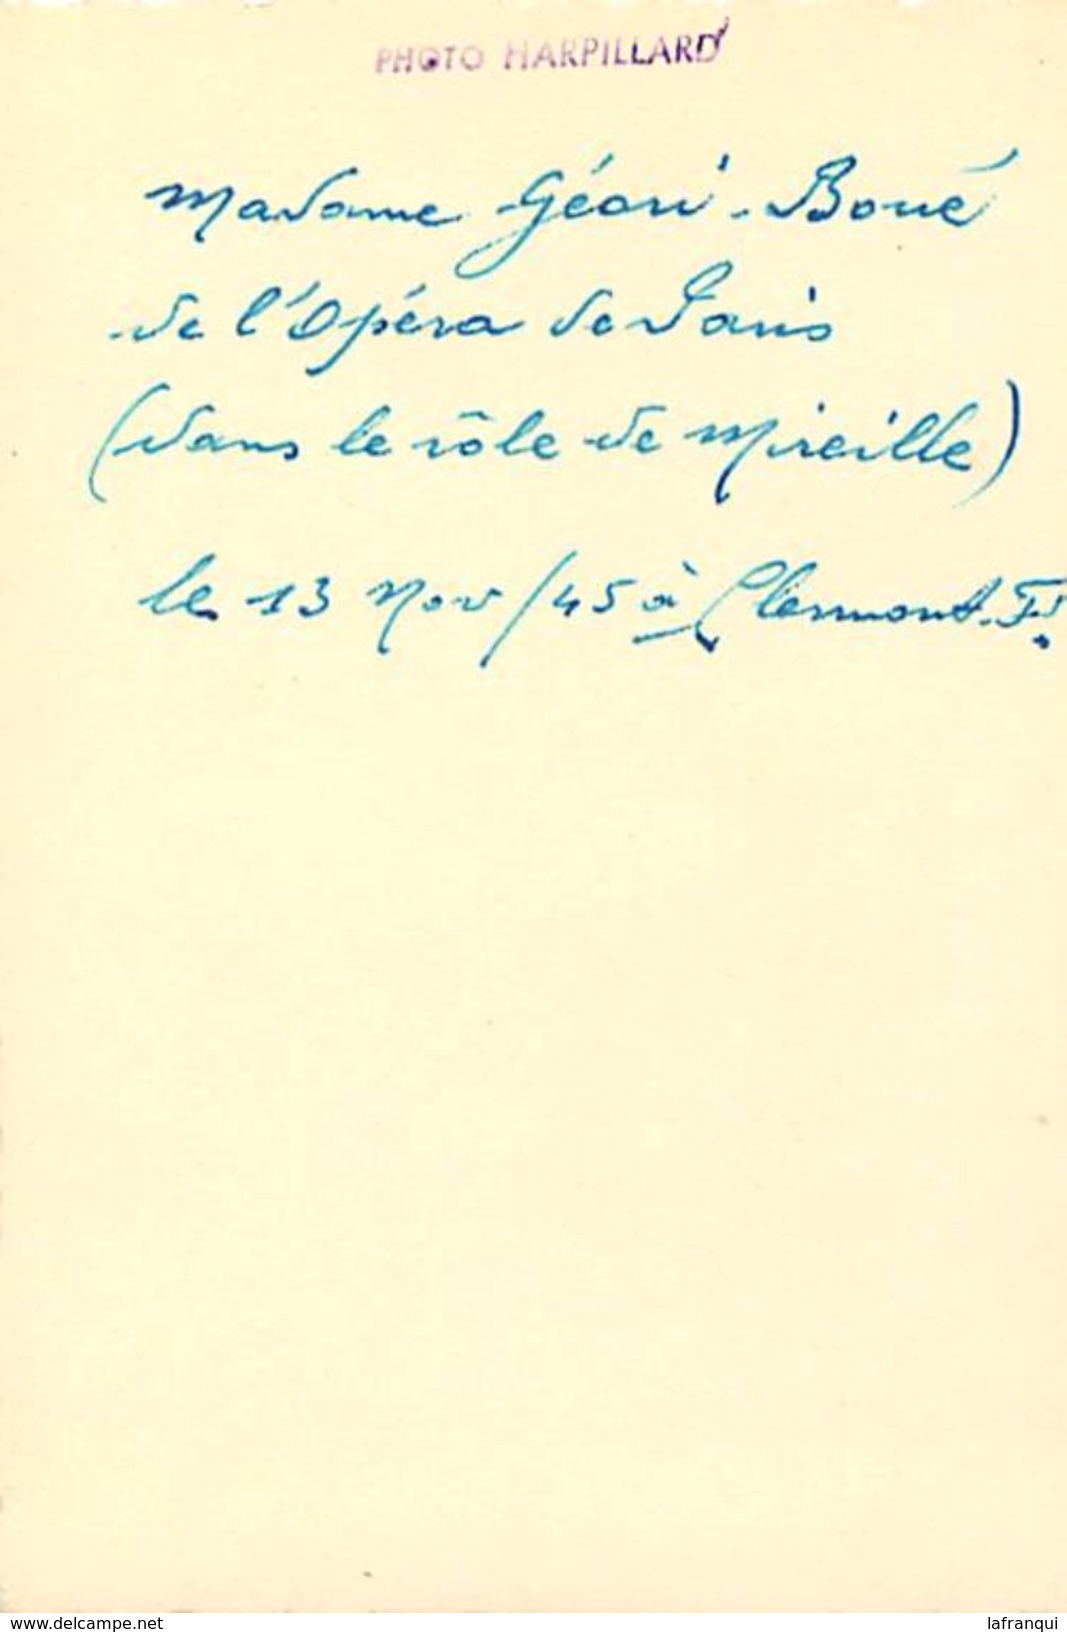 PHOTO HARPILLARD
Madame Géori-Boué
de l'Opéra de Paris
(dans le rôle de Mireille)
le 13 Nov/45 à Clermont-Fd.
www.delcampe.net lafranqui